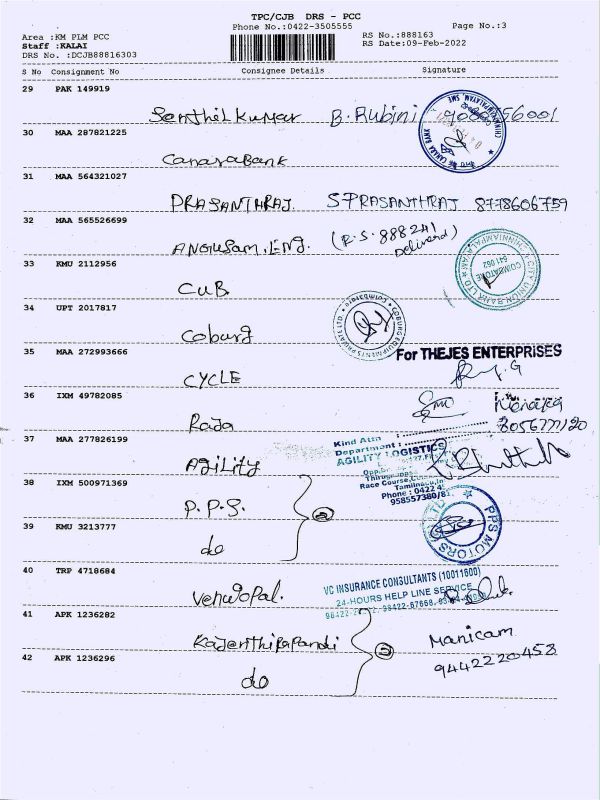 TPC/CJB DRS - PCC
Phone No.:0422-3505555 Page No.:3
Area :KM PLM PCC RS No.:888163
Staff :KALAI RS Date:09-Feb-2022
DRS No. :DCJB88816303
S No Consignment No Consignee Details Signature
29 PAK 149919
Senthil kumar B. Rubini
30 MAA 287821225
Canara Bank CANARA BANK
31 MAA 564321027
PRASANTHRAJ. S PRASANTHRAJ 8778606759
32 MAA 565526699
ANGUSAM. ENG. (R.S. 888241 Delivered)
33 KMU 2112956
CUB CITY UNION BANK LTD COIMBATORE 641 062
34 UPT 2017817
Coburg COBURG EQUIPMENTS PRIVATE LTD Coimbatore
35 MAA 272993666 For THEJES ENTERPRISES
CYCLE
36 IXM 49782085
Raja
37 MAA 277826199
Kind Attn :
Department :
AGILITY LOGISTICS
Agility
Race Course,
Tamilnadu,
Phone : 0422 4
958557380/81
38 IXM 500971369
P.P.S. 2 PPS MOTORS
39 KMU 3213777
do
40 TRP 4718684
VC INSURANCE CONSULTANTS (10011600)
24-HOURS HELP LINE SERVICE
Venugopal.
41 APK 1236282
2 Manicam
9442220458
42 APK 1236296
do